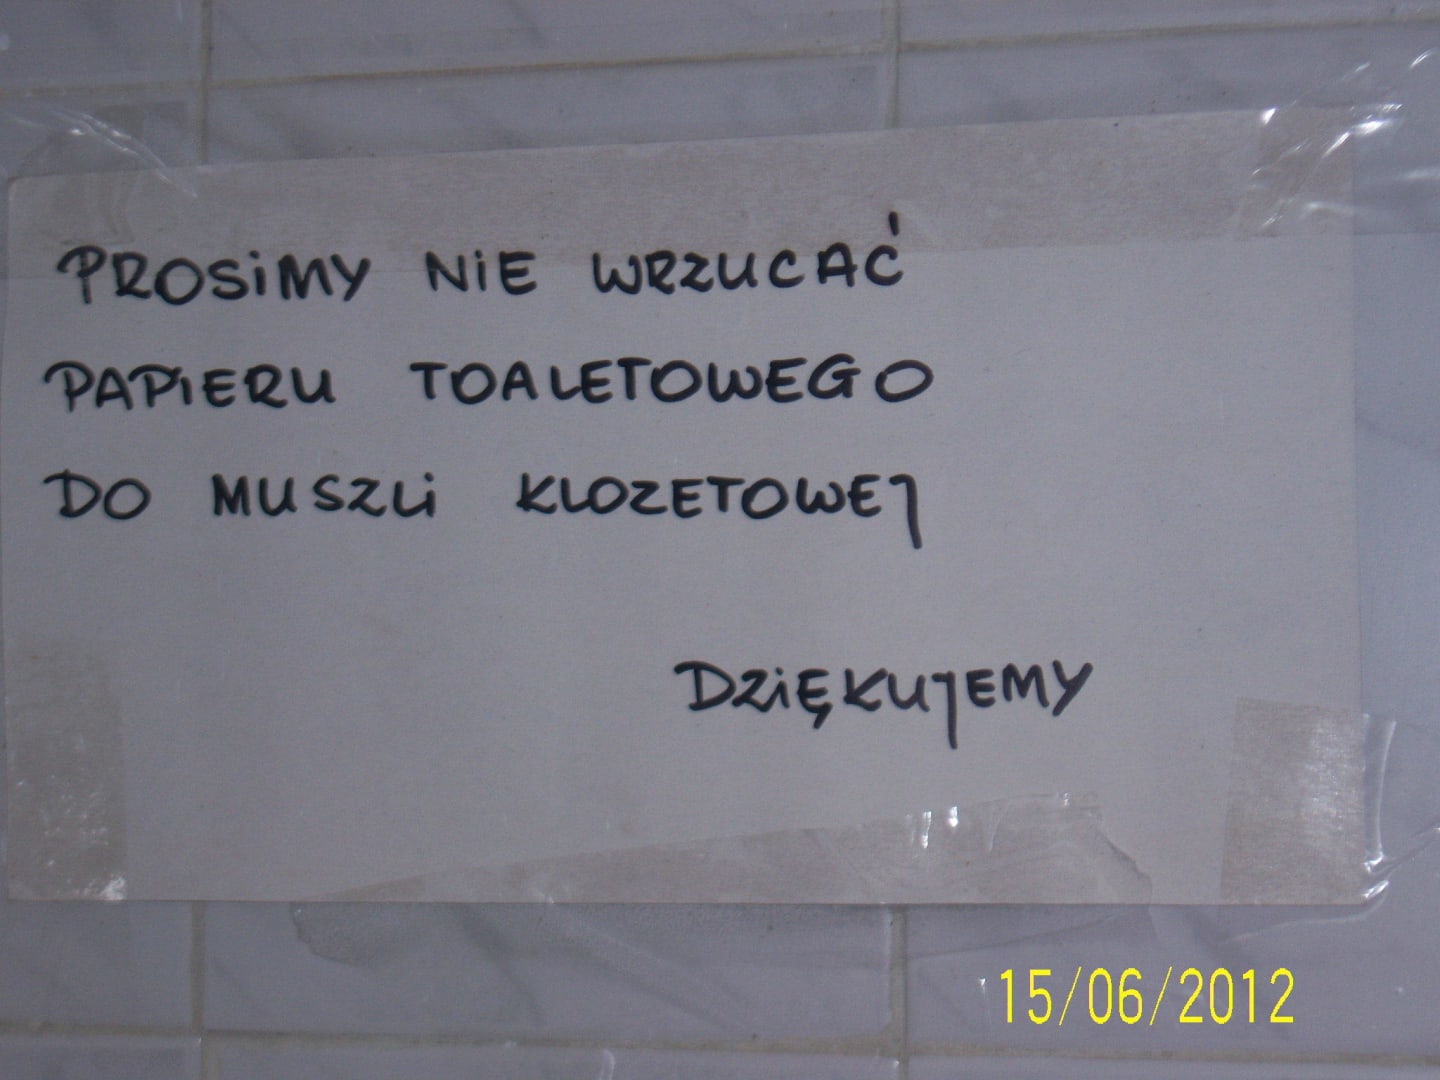 PROSiMY NiE WRZUCAĆ
PAPiERU TOALETOWEGO
DO MUSZLi KLOZETOWEJ
DZiĘKUJEMY
15/06/2012